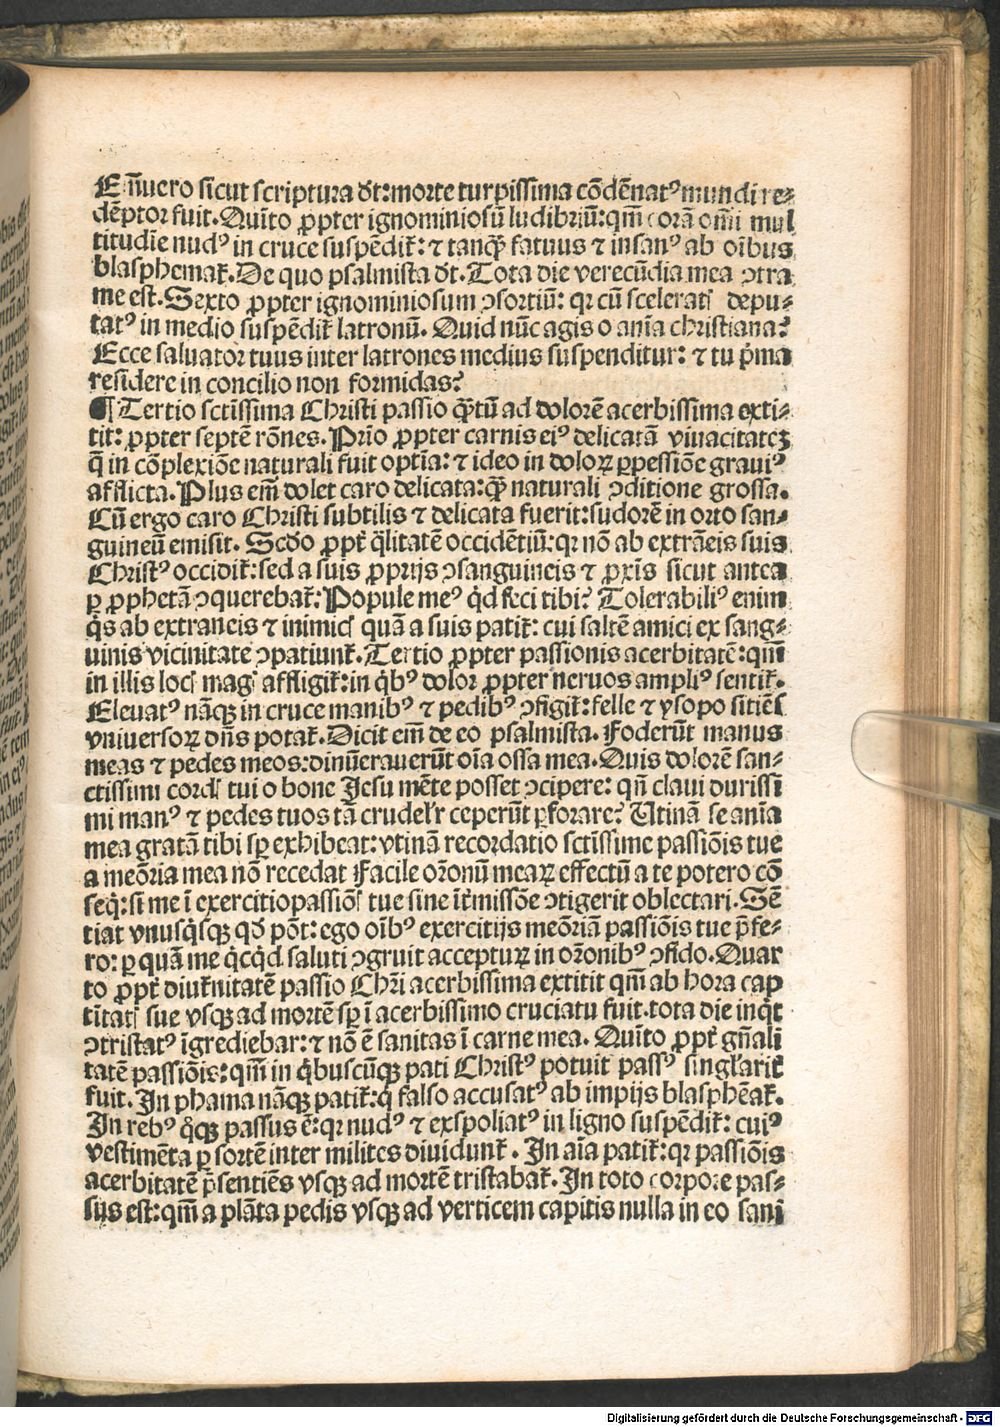 Eñuero sicut scriptura dt̄: morte turpissima cōdēnatꝰ mundi re⸗
dēptor fuit. Quīto ꝓpter ignominiosū ludibriū: qm̄ corā om̄i mul
titudīe nudꝰ in cruce suspēdit̄: ⁊ tanqȝ fatuus ⁊ insanꝰ ab oībus
blasphemat̄. De quo psalmista dt̄. Tota die verecūdia mea ↄtra
me est. Sexto ꝓpter ignominiosum ↄsortiū: qꝛ cū sceleratꝭ depu⸗
tatꝰ in medio suspēdit̄ latronū. Quid nūc agis o anīa christiana?
Ecce saluator tuus inter latrones medius suspenditur: ⁊ tu p̄ma
residere in concilio non formidas?
¶ Tertio sctīssima Christi passio qȝtū ad dolorē acerbissima exti⸗
tit: ꝓpter septē rōnes. Prīo ꝓpter carnis eiꝰ delicatā viuacitateȝ
q̄ in cōplexiōe naturali fuit optīa: ⁊ ideo in doloꝝ ꝑpessiōe grauiꝰ
afflicta. Plus em̄ dolet caro delicata: qȝ naturali ↄditione grossa.
Cū ergo caro Christi subtilis ⁊ delicata fuerit: sudorē in orto san⸗
guineū emisit. Scd̄o ꝓpt̄ q̄litatē occidētiū: qꝛ nō ab extrāeis suis
Christꝰ occidit̄: sed a suis ꝓprijs ↄsanguineis ⁊ ꝓxīs sicut antea
ꝑ ꝓphetā ↄquerebat̄: Popule meꝰ qͥd feci tibi? Tolerabiliꝰ enim
qͥs ab extraneis ⁊ inimicꝭ quā a suis patit̄: cui saltē amici ex sang⸗
uinis vicinitate ↄpatiunt̄. Tertio ꝓpter passionis acerbitatē: qm̄
in illis locꝭ magꝭ affligit̄: in qͥbꝰ dolor ꝓpter neruos ampliꝰ sentit̄.
Eleuatꝰ nāqȝ in cruce manibꝰ ⁊ pedibꝰ ↄfigit̄: felle ⁊ ysopo sitiēs
vniuersoꝝ dn̄s potat̄. Dicit em̄ de eo psalmista. Foderūt manus
meas ⁊ pedes meos: dinūerauerūt oīa ossa mea. Quis dolorē san⸗
ctissimi cordꝭ tui o bone Jesu mēte posset ↄcipere: qn̄ claui durissi
mi manꝰ ⁊ pedes tuos tā crudelr̄ ceperūt ꝑforare? Utinā se anīa
mea gratā tibi sꝑ exhibeat: vtinā recordatio sctīssime passiōis tue
a meōria mea nō recedat Facile or̄onū meaꝝ effectū a te potero cō
seqͥ: si me ī exercitio passiōꝭ tue sine īt̄missōe ↄtigerit oblectari. Sē
tiat vnusqͥsqȝ qd̄ pōt: ego oībꝰ exercitijs meōriā passiōis tue p̄fe⸗
ro: ꝑ quā me qͥcqͥd saluti ↄgruit accepturꝝ in or̄onibꝰ ↄfido. Quar
to ꝓpt̄ diut̄nitatē passio Chr̄i acerbissima extitit qm̄ ab hora cap
tītatꝭ sue vsqȝ ad mortē sꝑ ī acerbissimo cruciatu fuit. tota die inqͥt
ↄtristatꝰ īgrediebar: ⁊ nō ē sanitas ī carne mea. Quīto ꝓpt̄ gn̄ali
tatē passiōis: qm̄ in qͥbuscūqȝ pati Christꝰ potuit passꝰ singlarit̄
fuit. In phama nāqȝ patit̄: qꝛ falso accusatꝰ ab impijs blasphēat̄.
In rebꝰ qͦqȝ passus ē: qꝛ nudꝰ ⁊ exspoliatꝰ in ligno suspēdit̄: cuiꝰ
vestimēta ꝑ sortē inter milites diuidunt̄. In aīa patit̄: qꝛ passiōis
acerbitatē p̄sentiēs vsqȝ ad mortē tristabat̄. In toto corpore pas⸗
sus est: qm̄ a plāta pedis vsqȝ ad verticem capitis nulla in eo sani
Digitalisierung gefördert durch die Deutsche Forschungsgemeinschaft - DFG